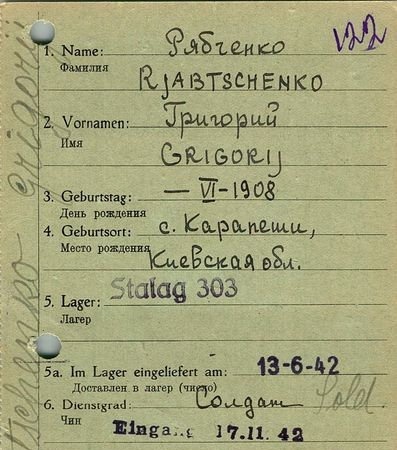 122
1. Name: Рябченко
Фамилия
RJABTSCHENKO
2. Vornamen: Григорий
Имя
GRIGORIJ
3. Geburtstag: — VI - 1908
День рождения
4. Geburtsort: с. Карапеши,
Место рождения
Киевская обл.
5. Lager: Stalag 303
Лагерь
5a. Im Lager eingeliefert am: 13-6-42
Доставлен в лагерь (число)
6. Dienstgrad: Солдат Sold.
Чин
Eingang 17.11.42
tschenko Grigorij